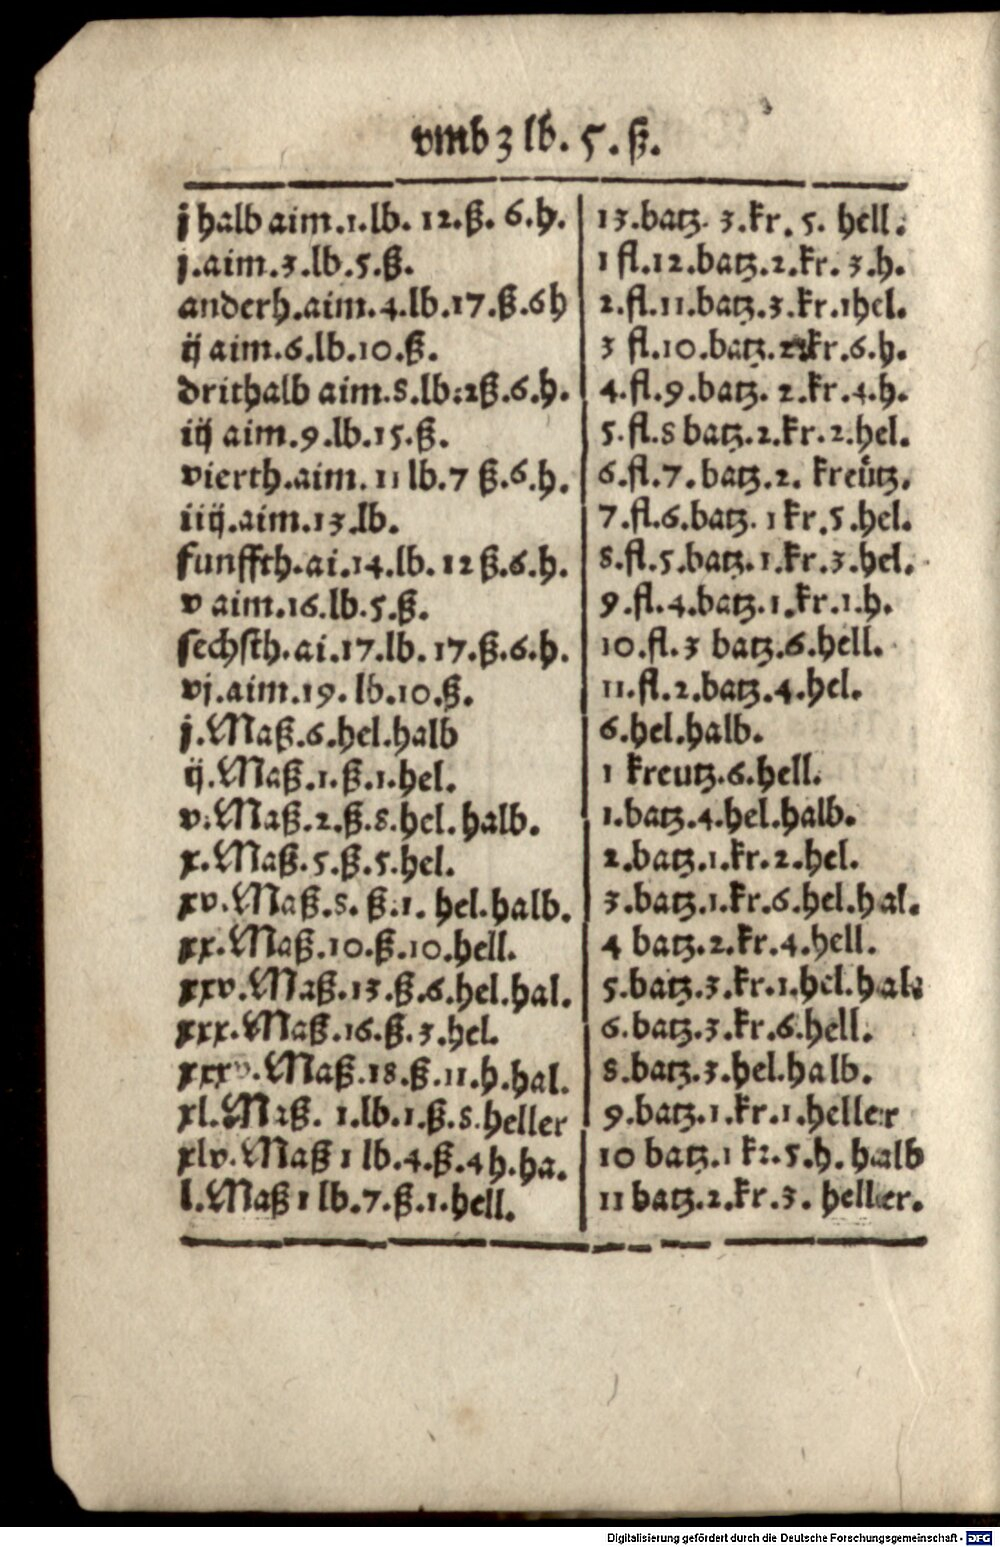 vmb 3 lb. 5. ß.
j halb aim. 1. lb. 12. ß. 6. h. 13. batz. 3. kr. 5. hell.
j. aim. 3. lb. 5. ß. 1 fl. 12. batz. 2. kr. 3. h.
anderh. aim. 4. lb. 17. ß. 6 h 2. fl. 11. batz. 3. kr. 1 hel.
ij aim. 6. lb. 10. ß. 3 fl. 10. batz. kr. 6. h.
drithalb aim. 8. lb. 2 ß. 6. h. 4. fl. 9. batz. 2. kr. 4. h.
iij aim. 9. lb. 15. ß. 5. fl. 8 batz. 2. kr. 2. hel.
vierth. aim. 11 lb. 7 ß. 6. h. 6. fl. 7. batz. 2. kreütz.
iiij. aim. 13. lb. 7. fl. 6. batz. 1 kr. 5. hel.
funffth. ai. 14. lb. 12 ß. 6. h. 8. fl. 5. batz. 1. kr. 3. hel.
v aim. 16. lb. 5. ß. 9. fl. 4. batz. 1. kr. 1. h.
sechsth. ai. 17. lb. 17. ß. 6. h. 10. fl. 3 batz. 6. hell.
vj. aim. 19. lb. 10. ß. 11. fl. 2. batz. 4. hel.
j. Maß. 6. hel. halb 6. hel. halb.
ij. Maß. 1. ß. 1. hel. 1 kreutz. 6. hell.
v. Maß. 2. ß. 8. hel. halb. 1. batz. 4. hel. halb.
x. Maß. 5. ß. 5. hel. 2. batz. 1. kr. 2. hel.
xv. Maß. 8. ß. 1. hel. halb. 3. batz. 1. kr. 6. hel. hal.
xx. Maß. 10. ß. 10. hell. 4 batz. 2. kr. 4. hell.
xxv. Maß. 13. ß. 6. hel. hal. 5. batz. 3. kr. 1. hel. hal.
xxx. Maß. 16. ß. 3. hel. 6. batz. 3. kr. 6. hell.
xxxv. Maß. 18. ß. 11. h. hal. 8. batz. 3. hel. halb.
xl. Maß. 1. lb. 1. ß. 8. heller 9. batz. 1. kr. 1. heller
xlv. Maß 1 lb. 4. ß. 4 h. ha. 10 batz. 1 kr. 5. h. halb
l. Maß 1 lb. 7. ß. 1. hell. 11 batz. 2. kr. 3. heller.
Digitalisierung gefördert durch die Deutsche Forschungsgemeinschaft - DFG